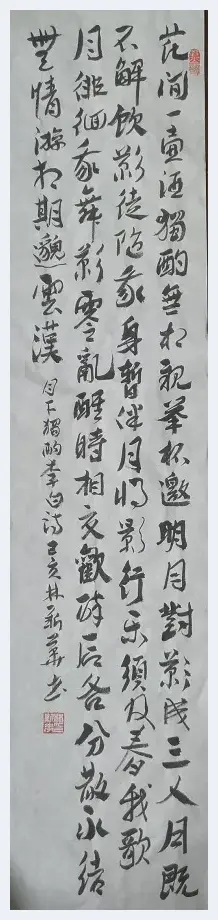 花间一壶酒独酌无相亲举杯邀明月對影成三人月既
不解飲影徒随我身暫伴月將影行乐须及春我歌
月徘徊我舞影零亂醒時相交歡醉后各分散永结
無情游相期邈雲漢 月下獨酌李白诗己亥林新華书